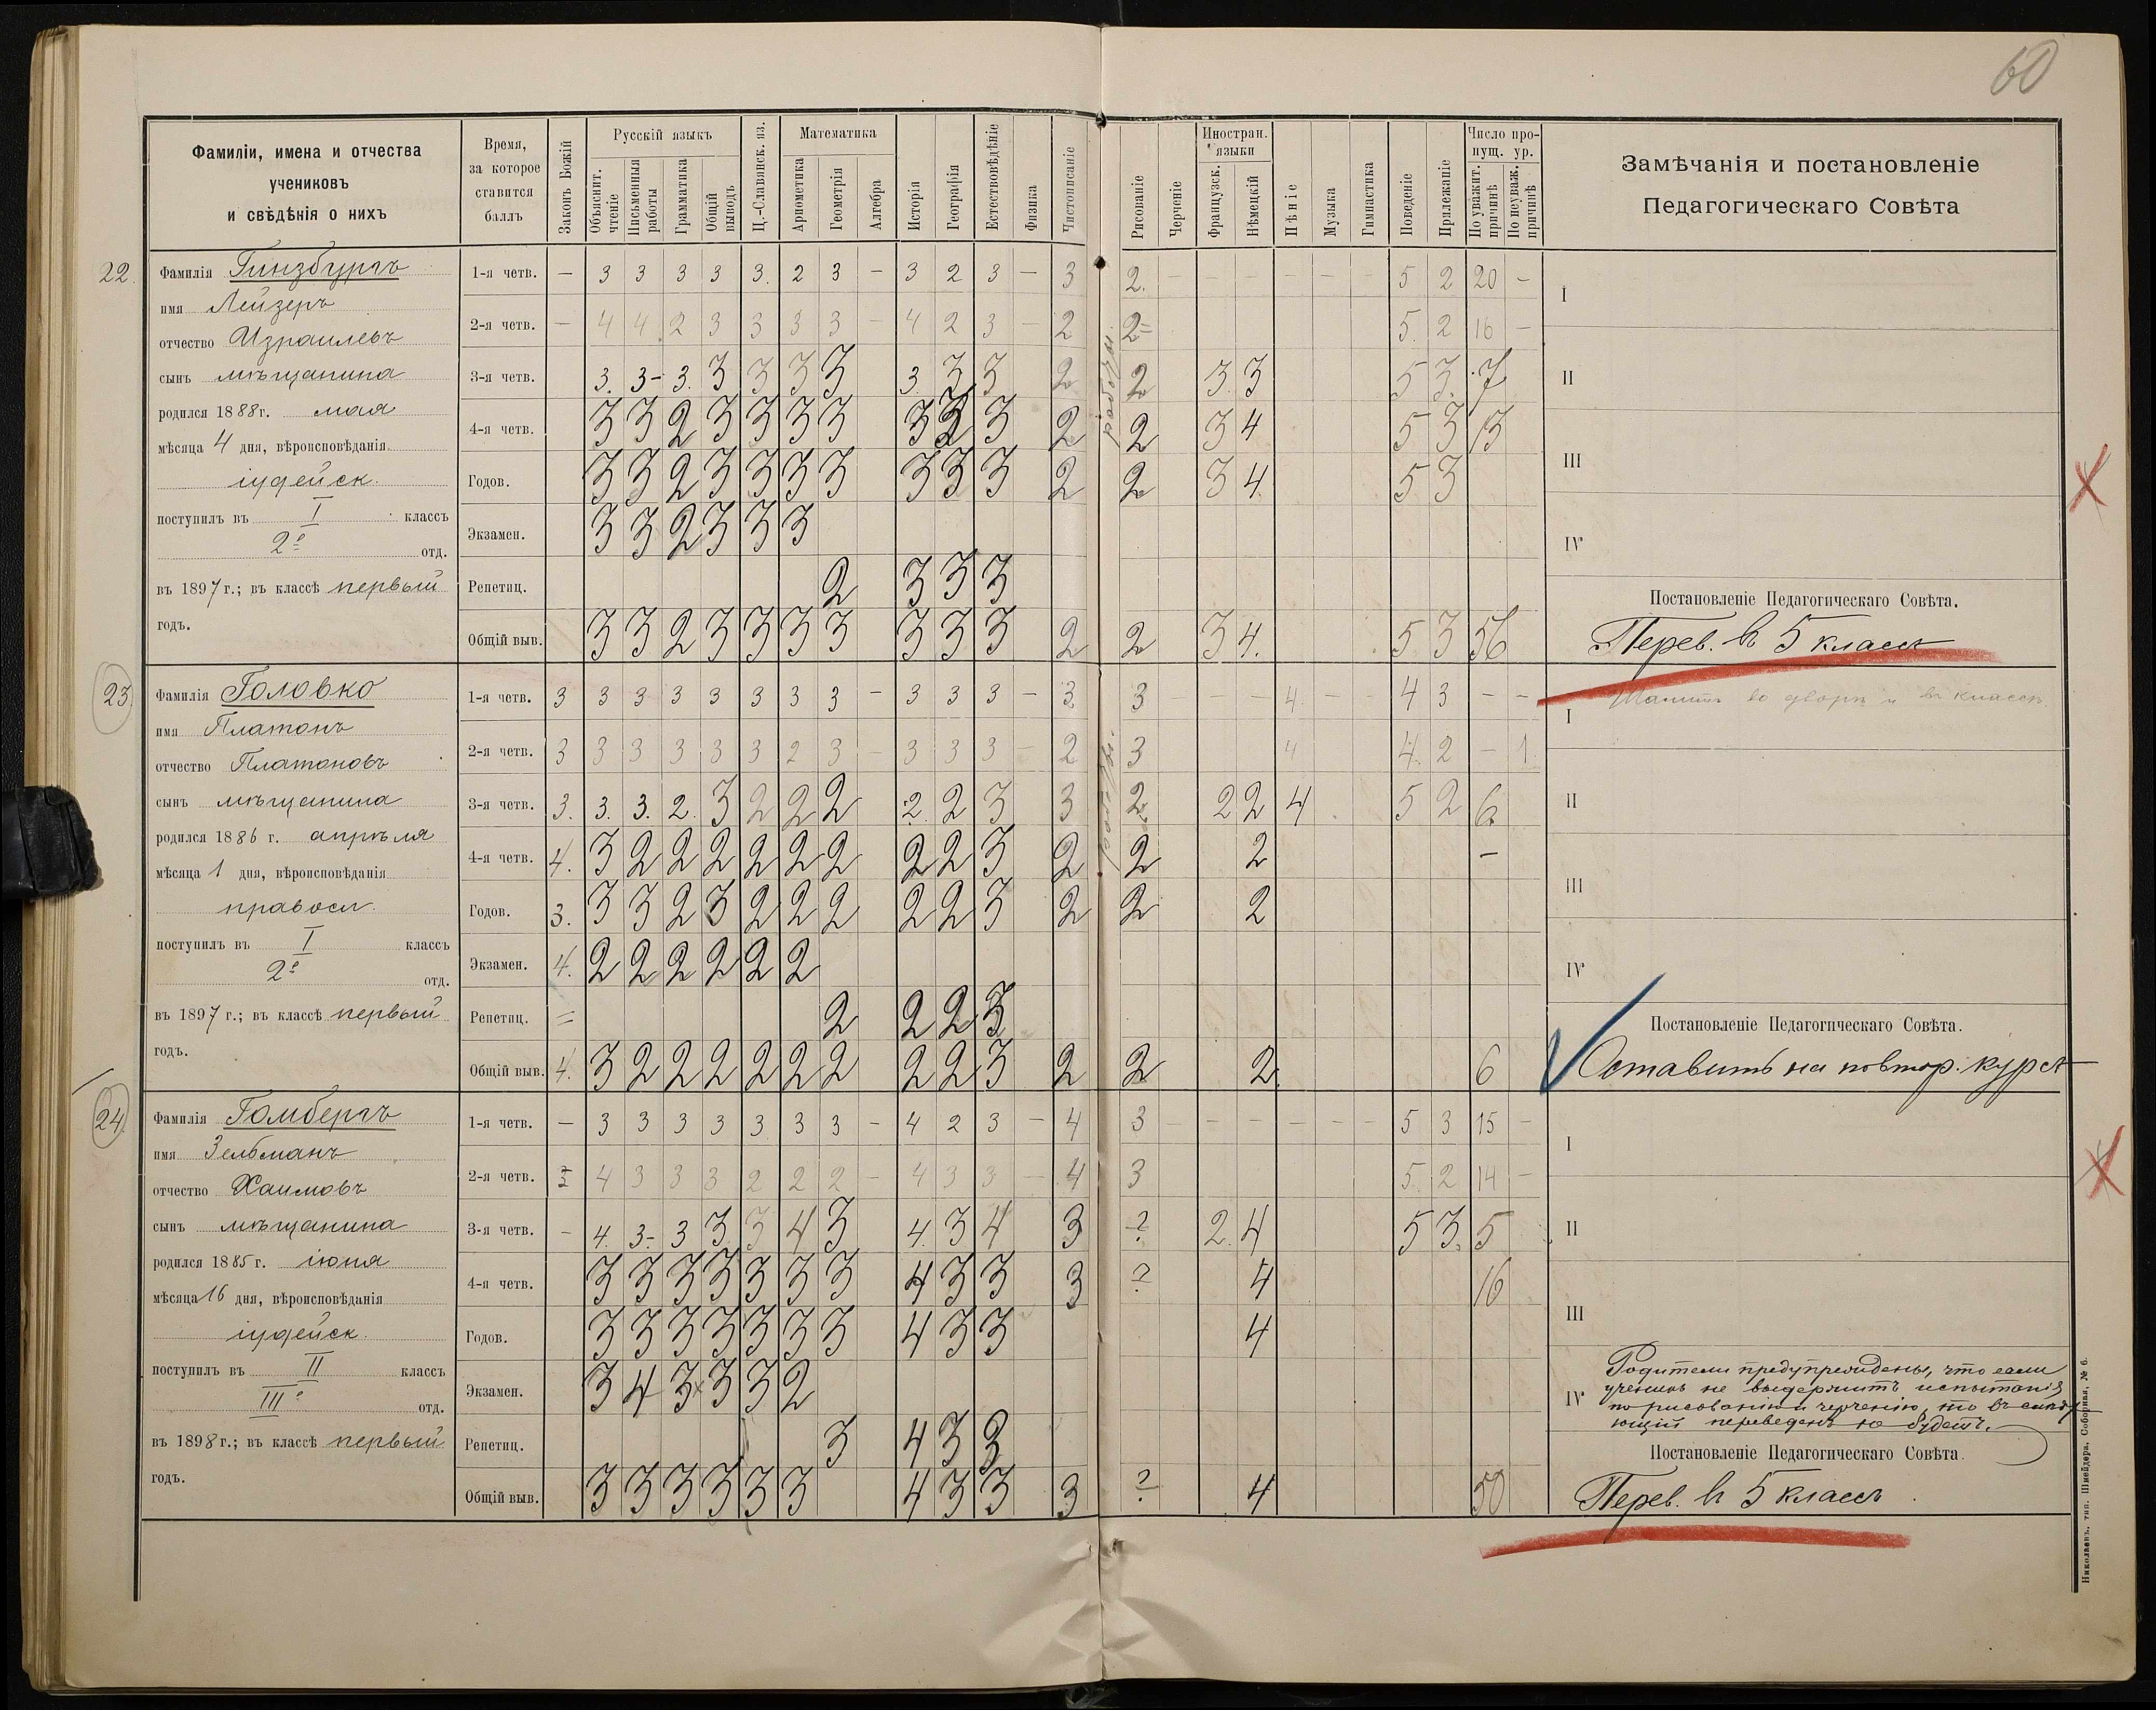 60
Фамиліи, имена и отчества
учениковъ
и свѣдѣнія о нихъ
Время,
за которое
ставится
баллъ
Законъ Божій
Русскій языкъ
Объяснит. чтеніе
Письменныя работы
Грамматика
Общій выводъ
Ц.-Славянск. яз.
Математика
Ариѳметика
Геометрія
Алгебра
Исторія
Географія
Естествовѣдѣніе
Физика
Чистописаніе
Рисованіе
Черченіе
Иностран. языки
Французск.
Нѣмецкій
Пѣніе
Музыка
Гимнастика
Поведеніе
Прилежаніе
Число пропущ. ур.
По уважит. причинѣ
По неуваж. причинѣ
Замѣчанія и постановленіе
Педагогическаго Совѣта
22.
Фамилія Гинзбургъ
имя Лейзеръ
отчество Израилевъ
сынъ мѣщанина
родился 1888 г. мая
мѣсяца 4 дня, вѣроисповѣданія
іудейск.
поступилъ въ I классъ
2е отд.
въ 1897 г.; въ классѣ первый
годъ.
1-я четв. — 3 3 3 3 3. 2 3 — 3 2 3 — 3 2. — — — — — — 5 2 20 —
2-я четв. — 4 4 2 3 3 3 3 — 4 2 3 — 2 2= 5. 2 16 —
3-я четв. 3. 3- 3. 3 3 3 3 3 3 3 2 2 3. 3 5 3. 7
4-я четв. 3 3 2 3 3 3 3 3 3 3 2 2 3 4 5 3 13
Годов. 3 3 2 3 3 3 3 3 3 3 2 2 3 4. 5 3
Экзамен. 3 3 2 3 3 3
Репетиц. 2 3 3 3
Общій выв. 3 3 2 3 3 3 3 3 3 3 2 2 3 4. 5 3 56
I
II
III
IV
Постановленіе Педагогическаго Совѣта.
Перев. въ 5 классъ
23.
Фамилія Головко
имя Платонъ
отчество Платоновъ
сынъ мѣщанина
родился 1886 г. апрѣля
мѣсяца 1 дня, вѣроисповѣданія
правосл.
поступилъ въ I классъ
2е отд.
въ 1897 г.; въ классѣ первый
годъ.
1-я четв. 3 3 3 3 3 3 3 3 — 3 3 3 — 3. 3 — — — 4. — — 4 3 — —
2-я четв. 3 3 3 3 3 3 2 3 — 3 3 3 — 2 3 4 4. 2 — 1.
3-я четв. 3. 3. 3. 2. 3 2 2 2 2. 2 3 3 2. 2 2 4 5 2 6
4-я четв. 4. 3 2 2 2 2 2 2 2 2 3 2 2 2 —
Годов. 3. 3 3 2 3 2 2 2 2 2 3 2 2 2
Экзамен. 4. 2 2 2 2 2 2
Репетиц. = 2 2 2 3
Общій выв. 4. 3 2 2 2 2 2 2 2 2 3 2 2 2. 6
Шалитъ во дворѣ и въ классѣ.
I
II
III
IV
Постановленіе Педагогическаго Совѣта.
Оставить на повтор. курсъ
24.
Фамилія Гомбергъ
имя Зельманъ
отчество Хаимовъ
сынъ мѣщанина
родился 1885 г. іюня
мѣсяца 16 дня, вѣроисповѣданія
іудейск.
поступилъ въ II классъ
IIIе отд.
въ 1898 г.; въ классѣ первый
годъ.
1-я четв. — 3 3 3 3 3 3 3 — 4 2 3 — 4 3 — — — — — — 5 3 15 —
2-я четв. 4 3 3 3 2 2 2 — 4 3 3 — 4 3 5. 2 14 —
3-я четв. — 4. 3- 3 3 3 4 3 4. 3 4 3 ? 2. 4 5 3. 5
4-я четв. 3 3 3 3 3 3 3 4 3 3 3 ? 4 16
Годов. 3 3 3 3 3 3 3 4 3 3 4
Экзамен. 3 4 3 3 3 2
Репетиц. 3 4 3 3
Общій выв. 3 3 3 3 3 3 4 3 3 3 ? 4 50
I
II
III
IV
Родители предупреждены, что если
ученикъ не выдержитъ испытанія
по рисованію и черченію, то въ слѣд
ющій переведенъ не будетъ.
Постановленіе Педагогическаго Совѣта.
Перев. въ 5 классъ
Николаевъ, тип. Шнейдера, Соборная, № 6.